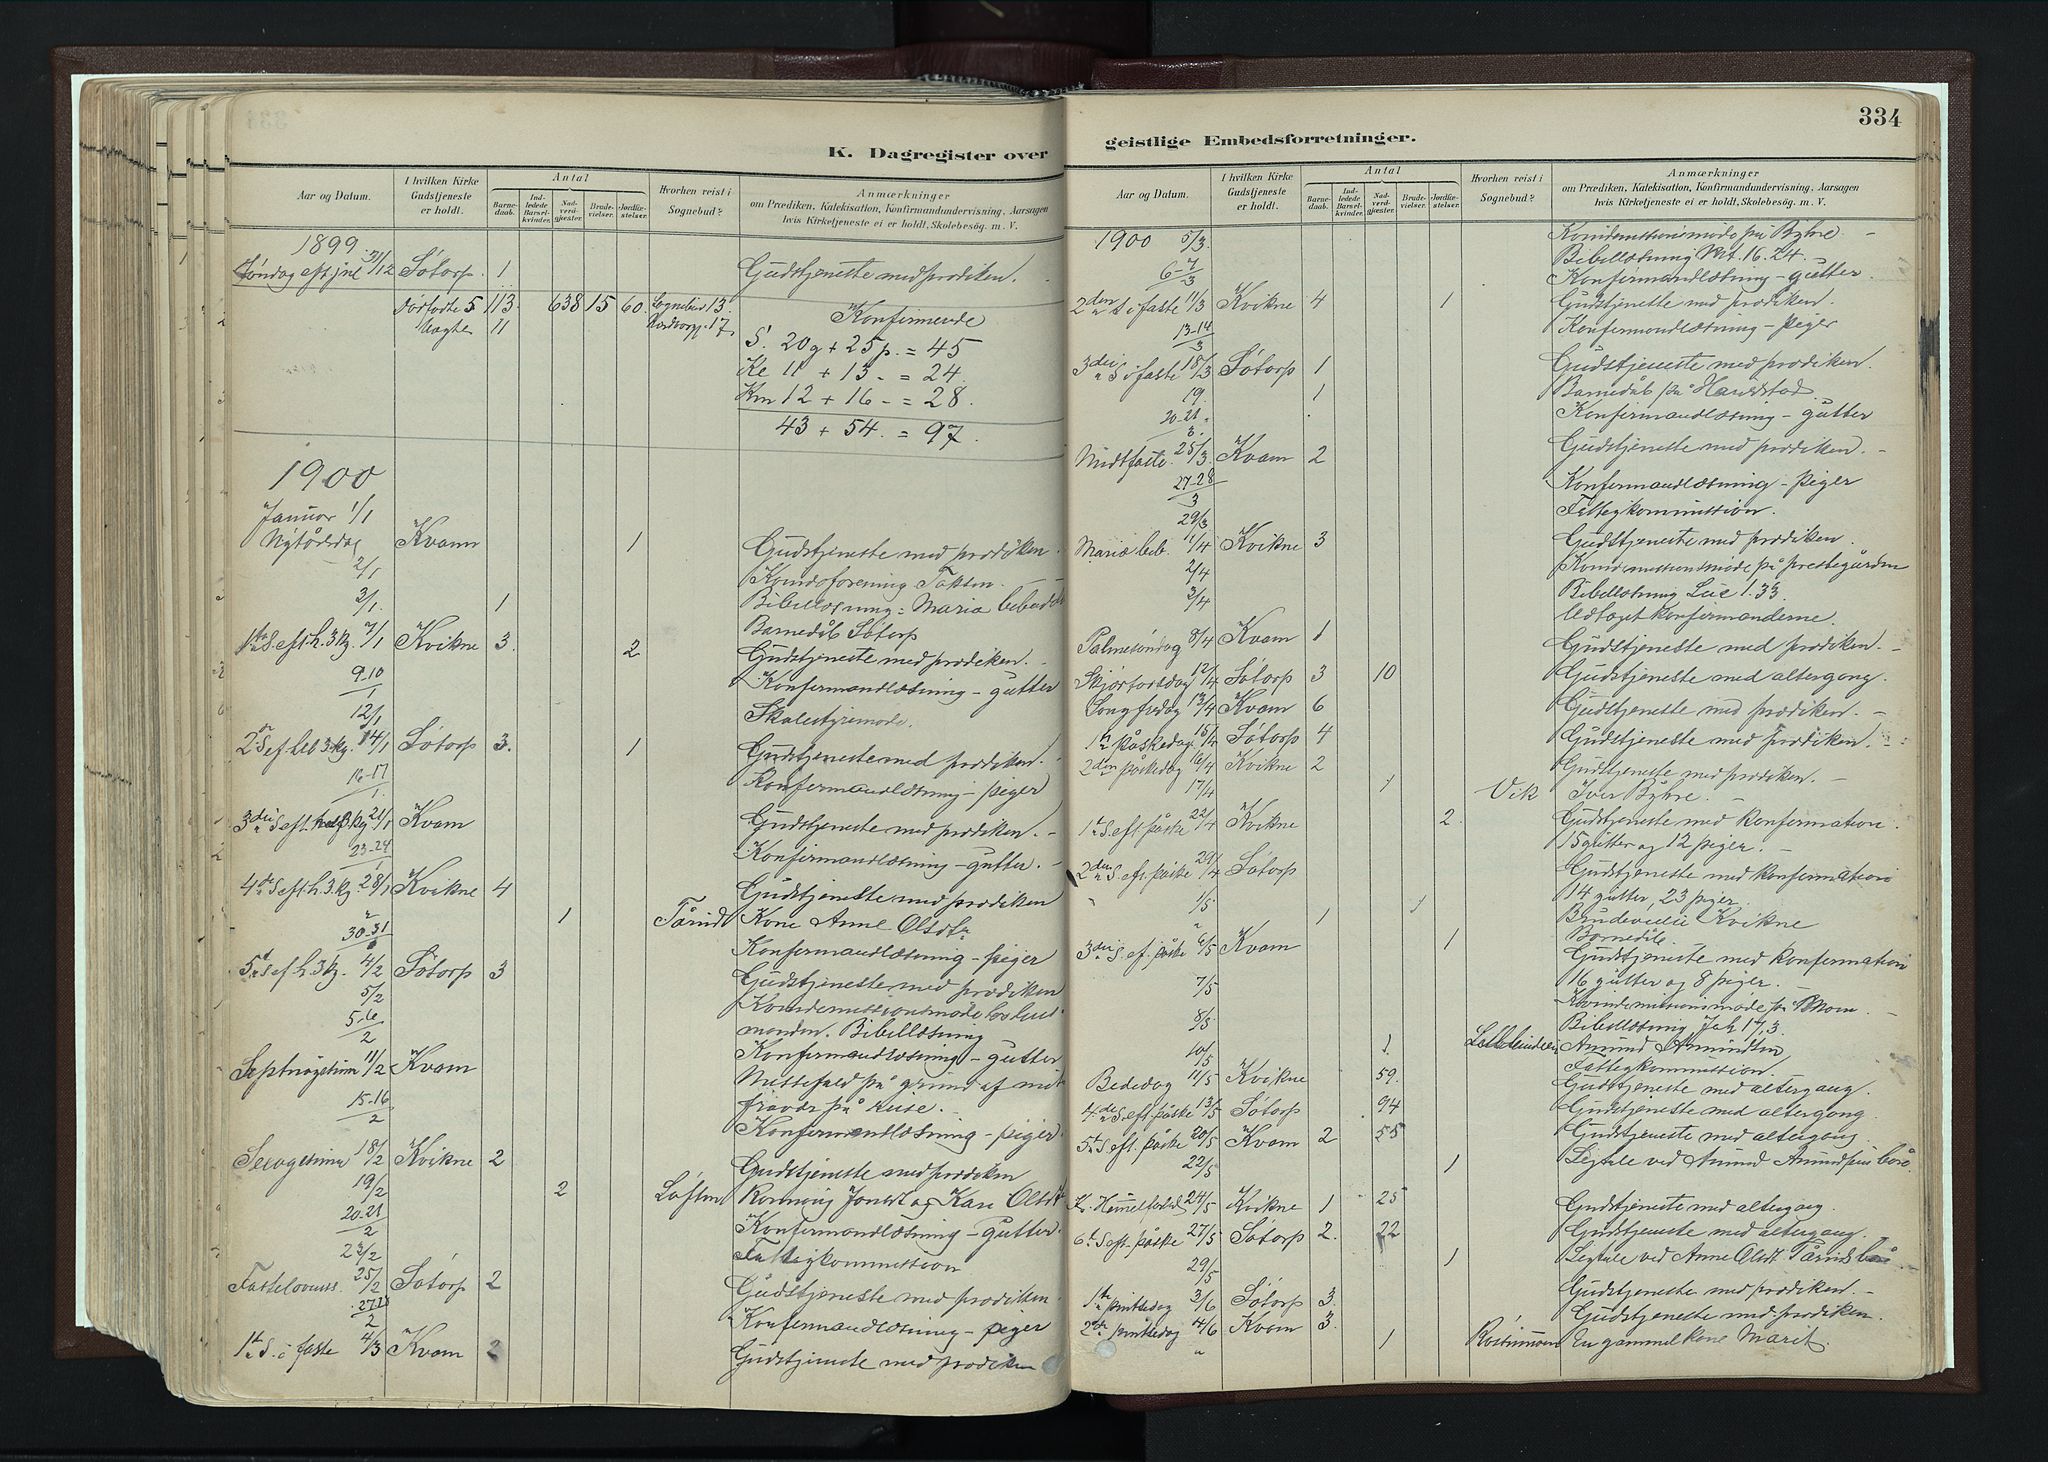 K. Dagregister over
Aar og Datum.
I hvilken Kirke Gudstjeneste er holdt.
Antal
Barnedaab.
Indledede Barselkvinder.
Nadverdgjester
Brudevielser.
Jordfæstelser.
Hvorhen reist i Sognebud?
Anmærkninger
om Prædiken, Katekisation, Konfirmandundervisning, Aarsagen
hvis Kirketjeneste ei er holdt, Skolebesøg. m. V.
1899
Søndag eft jul 31/12 Sødorp. 1 Gudstjeneste med prædiken.
5 113. 638 15 60. 13.
11 17
Konfirmerede
S. 20g + 25p. = 45
Ke 11 + 13 - = 24.
Km 12 + 16 - = 28.
43 + 54. = 97.
1900
Januar 1/1
Nytårsdag Kvam 1 Gudstjeneste med prædiken.
2/1 Kvindeforening
3/1. Bibellæsning: Maria bebud
1 Barnedåb Sødorp
1ste S. eft. h. 3 kg. 7/1 Kvikne 3. 2 Gudstjeneste med prædiken.
9-10/1 Konfirmandlæsning - gutter
12/1 Skolestyremøde.
2den S ef hel 3 kg. 14/1 Sødorp 3. 1 Gudstjeneste med prædiken.
16-17/1. Konfirmandlæsning - piger
3die S eft. hel 3 kg 21/1 Kvam Gudstjeneste med prædiken.
23-24/1 Konfirmandlæsning - gutter.
4de S eft. h. 3. kg. 28/1 Kvikne 4 Gudstjeneste med prædiken
1 Kone Anne Olsdtr
30-31 Konfirmandlæsning - piger
5te S ef h 3 kg. 4/2 Sødorp 3 Gudstjeneste med prædiken
5/2 Kvindemissionsmøde
5-6/2 Bibellæsning
Konfirmandlæsning - gutter
Septuagesima 11/2 Kvam Messefald på grund af mit
fravær på reise.
15-16/2 Konfirmandlæsning - piger
Sexagesima 18/2 Kvikne 2 Gudstjeneste med prædiken
19/2 2 Loften og Kari Olsdtr
20-21/2 Konfirmandlæsning - gutter.
23/2 Fattigkommission
Fastelavns. 25/2 Sødorp 2 Gudstjeneste med prædiken.
Konfirmandlæsning - piger
1te S. i faste 4/3 Kvam 2 Gudstjeneste med prædiken
334
geistlige Embedsforretninger.
Aar og Datum.
I hvilken Kirke Gudstjeneste er holdt.
Antal
Barnedaab.
Indledede Barselkvinder.
Nadverdgjester
Brudevielser.
Jordfæstelser.
Hvorhen reist i Sognebud?
Anmærkninger
om Prædiken, Katekisation, Konfirmandundervisning, Aarsagen
hvis Kirketjeneste ei er holdt, Skolebesøg. m. V.
1900 5/3. Kvindemissionsmøde på Byhre.
Bibellæsning Mt. 16. 24.
6-7/3 Konfirmandlæsning - gutter.
2den S i faste 11/3 Kvikne 4 1 Gudstjeneste med prædiken.
13-14/3 Konfirmandlæsning - piger
3die S i faste 18/3 Sødorp 1 Gudstjeneste med prædiken.
19. 1 Barnedåb på
20-21/3. Konfirmandlæsning - gutter
Midtfaste 25/3. Kvam 2 Gudstjeneste med prædiken.
27-28/3 Konfirmandlæsning - piger
29/3 Fattigkommission.
Mariæ beb. 1/4 Kvikne 3 Gudstjeneste med prædiken.
2/4 Kvindemissionsmøde på prestegården
Bibellæsning Luc 1. 33.
3/4 Udtaget konfirmanderne.
Palmesøndag 8/4 Kvam 1 Gudstjeneste med prædiken.
Skjærtorsdag 12/4 Sødorp 3 10 Gudstjeneste med altergang.
Langfredag 13/4 Kvam 6 Gudstjeneste med prædiken.
1te påskedag 15/4 Sødorp 4 Gudstjeneste med prædiken.
2den påskedag 16/4 Kvikne 2 Gudstjeneste med prædiken.
17/4 1 Vik Iver Byhre.
1te S. eft påske 22/4 Kvikne 2. Gudstjeneste med konfirmation.
15 gutter og 12 piger.
2den S. eft. påske 29/4 Sødorp Gudstjeneste med konfirmation
14 gutter, 23 piger.
1/5 1 1 Brudevielse Kvikne
Barnedåb.
3die S. ef. påske 6/5 Kvam 1 Gudstjeneste med konfirmation
16 gutter og 8 piger.
7/5 Kvindemissionsmøde på
8/5 Bibellæsning Joh 17,3.
10/5 1. Amund Amundsen
Fattigkommission.
Bededag 11/5 Kvikne 59. Gudstjeneste med altergang.
4de S eft påske 13/5 Sødorp 94 Gudstjeneste med altergang.
5te S. eft. påske 20/5 Kvam 2 55 Gudstjeneste med altergang.
22/5 1 Ligtale ved Amund Amundsens båre
K. Himmelfartsd 24/5 Kvikne 1 25 Gudstjeneste med altergang.
6te S eft. påske 27/5 Sødorp 2. 22 Gudstjeneste med altergang.
29/5 1 Ligtale ved Anne Olsdt
1te pintsedag 3/6 Sødorp 3. Gudstjeneste med prædiken.
2den pintsedag 4/6 Kvam 3. Gudstjeneste med prædiken.
" 1 En gammel kone Marit.